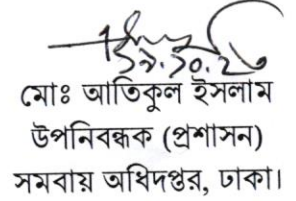 ১৯.১০.২৫
মোঃ আতিকুল ইসলাম
উপনিবন্ধক (প্রশাসন)
সমবায় অধিদপ্তর, ঢাকা।